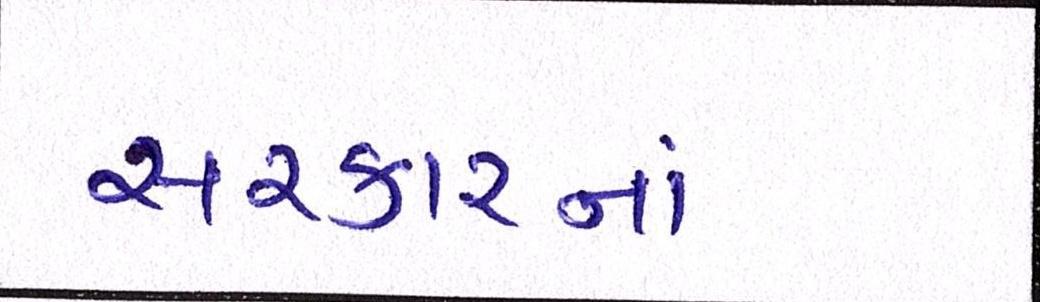 સરકારનાં